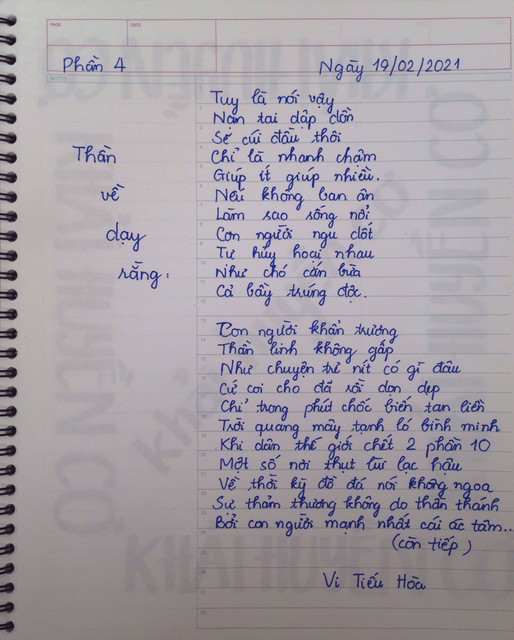 PAGE
DATE
Phần 4
Ngày 19/02/2021
Tuy là nói vậy
Nạn tai dập dồn
Sẽ cúi đầu thôi
Thần
Chỉ là nhanh chậm
Giúp ít giúp nhiều.
về
Nếu không ban ân
Làm sao sống nổi
dạy
Con người ngu dốt
Tự hủy hoại nhau
rằng:
Như chó cắn bừa
Cả bầy trúng độc.
Con người khẩn trương
Thần linh không gấp
Như chuyện trẻ nít có gì đâu
Cứ coi cho đã rồi dọn dẹp
Chỉ trong phút chốc biến tan liền
Trời quang mây tạnh ló bình minh
Khi dân thế giới chết 2 phần 10
Một số nơi thụt lùi lạc hậu
Về thời kỳ đồ đá nói không ngoa
Sự thảm thương không do thần thánh
Bởi con người mạnh nhất cái ác tâm..
(còn tiếp)
Vi Tiếu Hòa